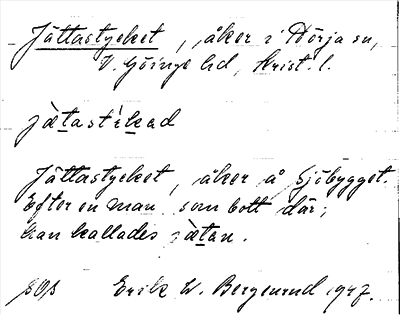 Jättastycket, åker i Nörja sn,
V. Göinge hd, Krist. l.
Jättastycket, åker å Sjöbygget.
Efter en man som bott där;
han kallades jä̀tan.
SOS Erik W. Bergenrud 1947.